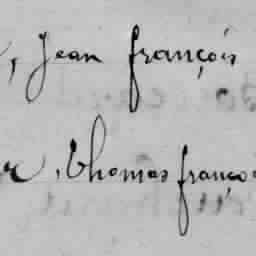 , Jean françois
, Thomas franço